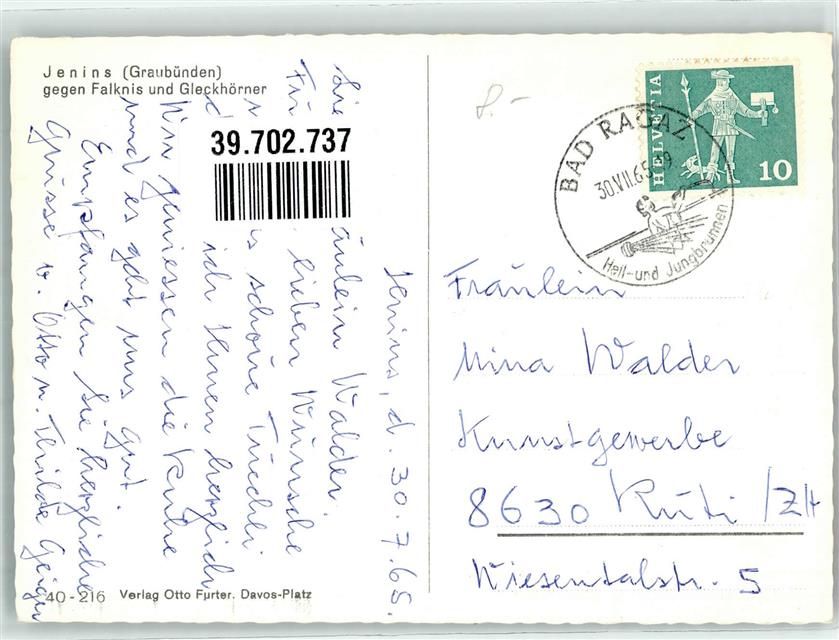 Jenins (Graubünden)
gegen Falknis und Gleckhörner
39.702.737
Jenins, d. 30.7.65.
Lie äulein Walder.
Fü lieben Wünsche
s schöne Tüechli
d ich Ihnen herzlich
Wir geniessen die Ruhe
und es geht uns gut.
Empfangen Sie herzliche
Grüsse v. Otto u. Thilde Geiger
40-216 Verlag Otto Furter. Davos-Platz
HELVETIA
10
BAD RAGAZ
30.VII.65
Heil- und Jungbrunnen
Fräulein
Mina Walder
Kunstgewerbe
8630 Rüti /ZH
Wiesentalstr. 5